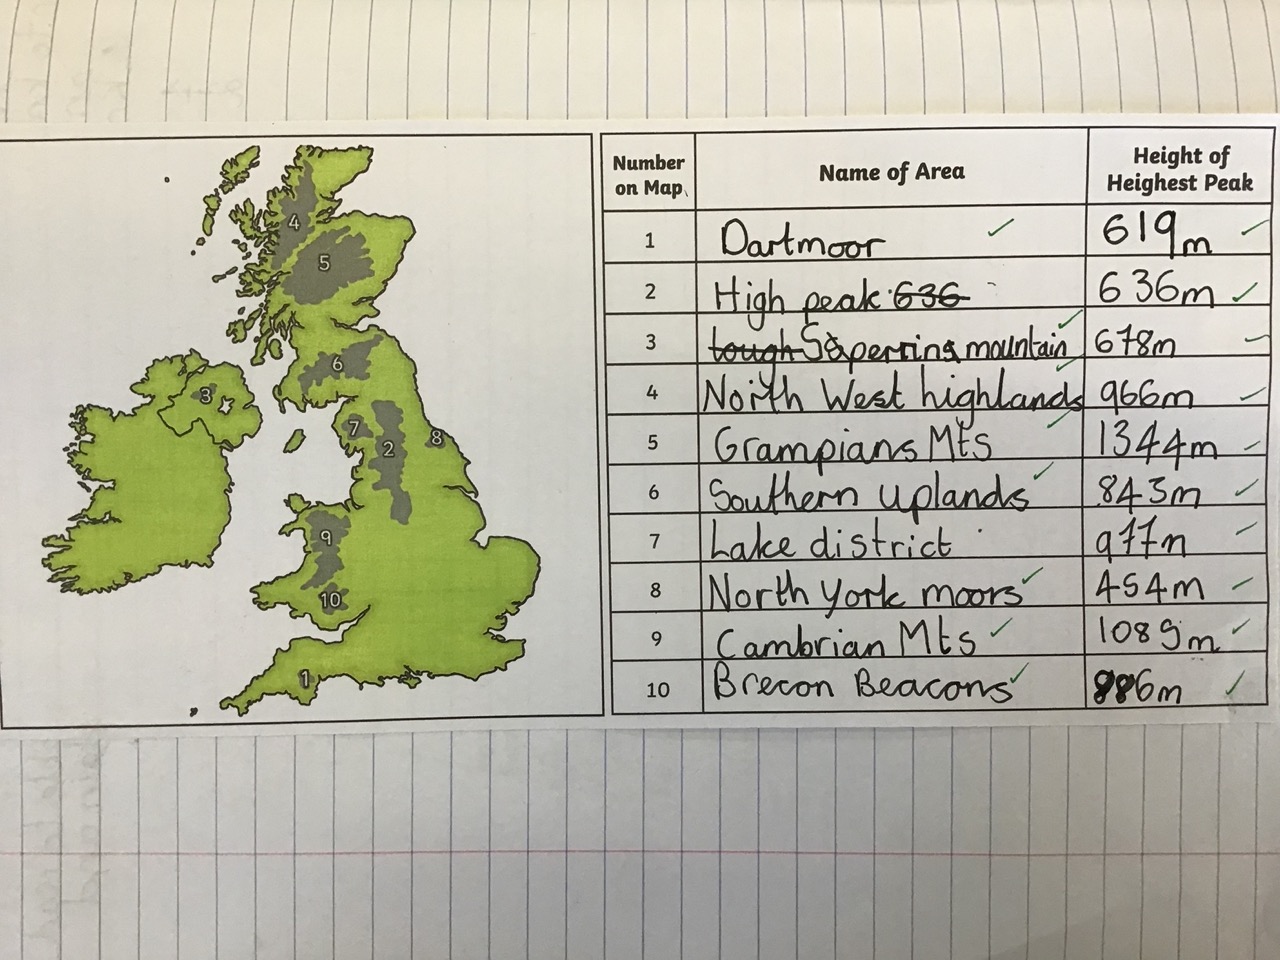 Number on Map
Name of Area
Height of Heighest Peak
1 Dartmoor 619m
2 High peak 636 636m
3 tough Sperrins mountain 678m
4 North West highlands 966m
5 Grampians Mts 1344m
6 Southern uplands 843m
7 Lake district 977m
8 North York moors 454m
9 Cambrian Mts 1089m
10 Brecon Beacons 886m
4
5
6
3
7
2
8
9
10
1